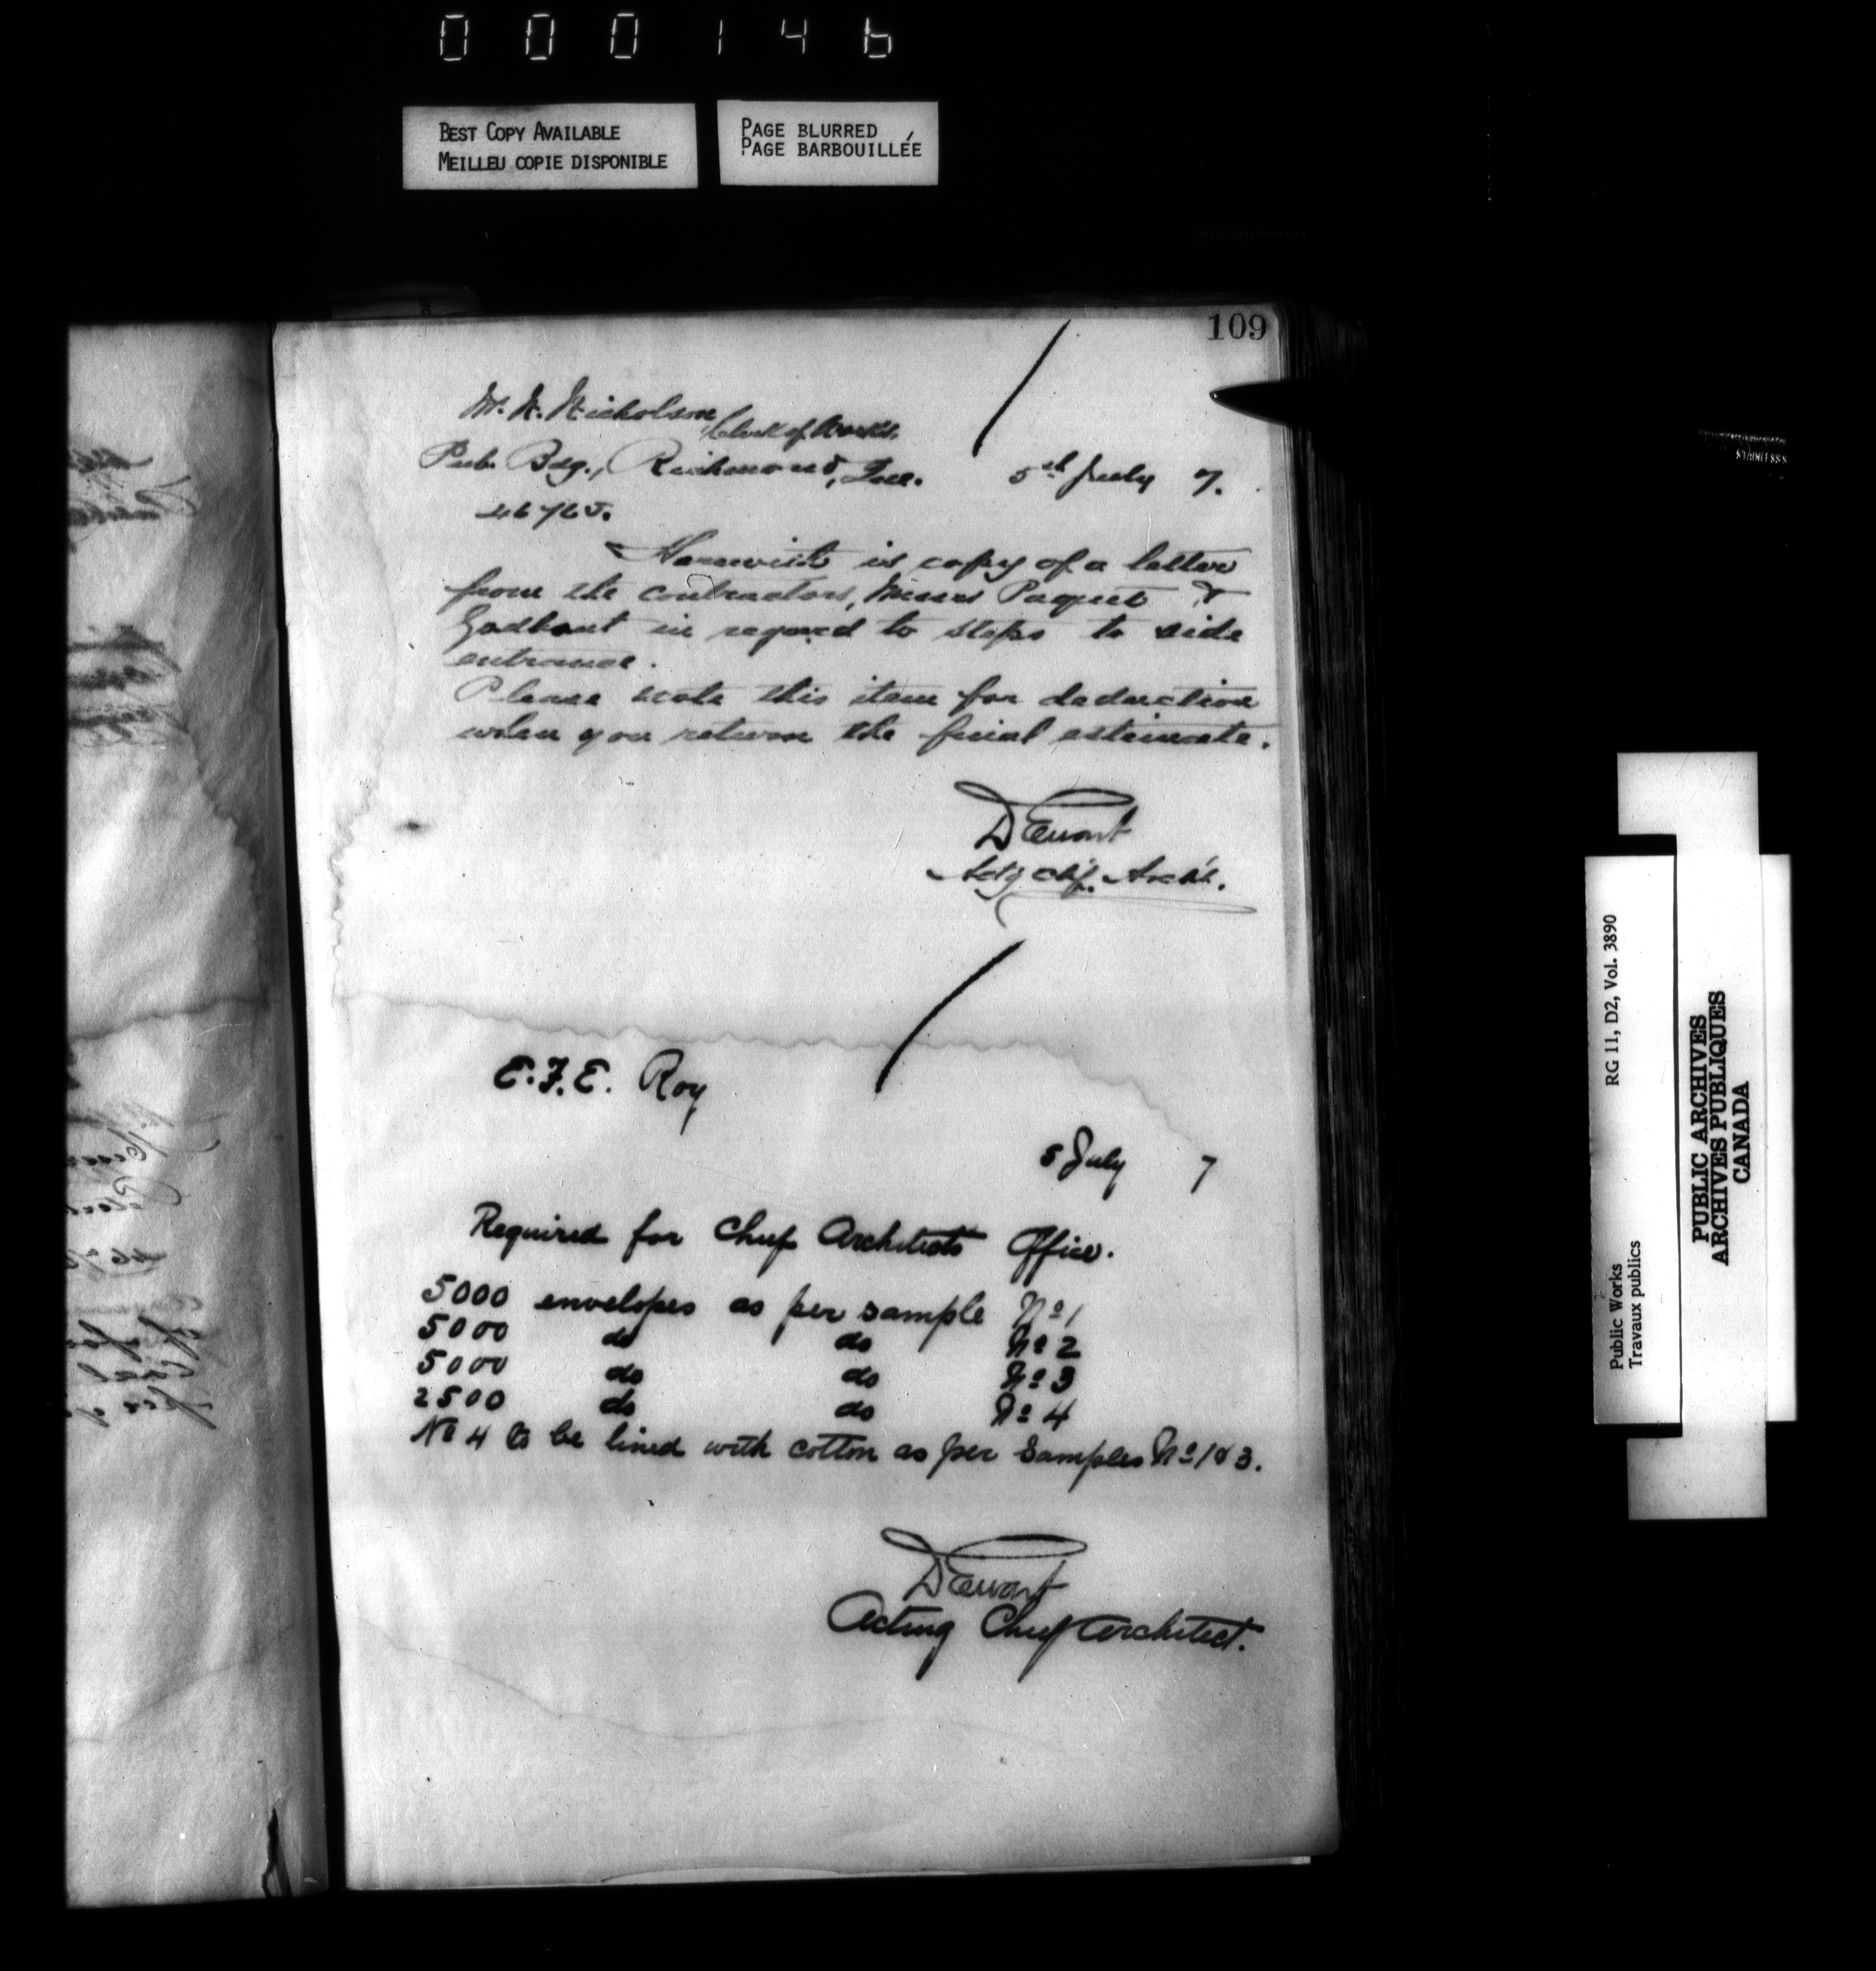 000146
BEST COPY AVAILABLE
MEILLEU COPIE DISPONIBLE
PAGE BLURRED
PAGE BARBOUILLÉE
109
Mr. N. Nicholson,
Clerk of Works.
Pub. Bdg., Richmond, Que. 5th July 7.
Herewith is copy of a letter
from the contractors, Messrs Paquet &
Godbout in regard to steps to side
entrance.
Please note this item for deduction
when you return the final estimate.
D Ewart
Actg Chf. Archt.
E.F.E. Roy
5 July 7
Required for Chief Architects Office.
5000 envelopes as per sample No 1
5000 do do No 2
5000 do do No 3
2500 do do No 4
No 4 to be lined with cotton as per samples No 1 & 3.
D Ewart
Acting Chief Architect.
Public Works RG 11, D2, Vol. 3890
Travaux publics
PUBLIC ARCHIVES
ARCHIVES PUBLIQUES
CANADA